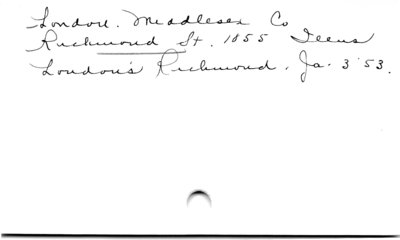 London. Middlesex Co
Richmond St. 1855 Views
London's Richmond. Ja. 3 '53.